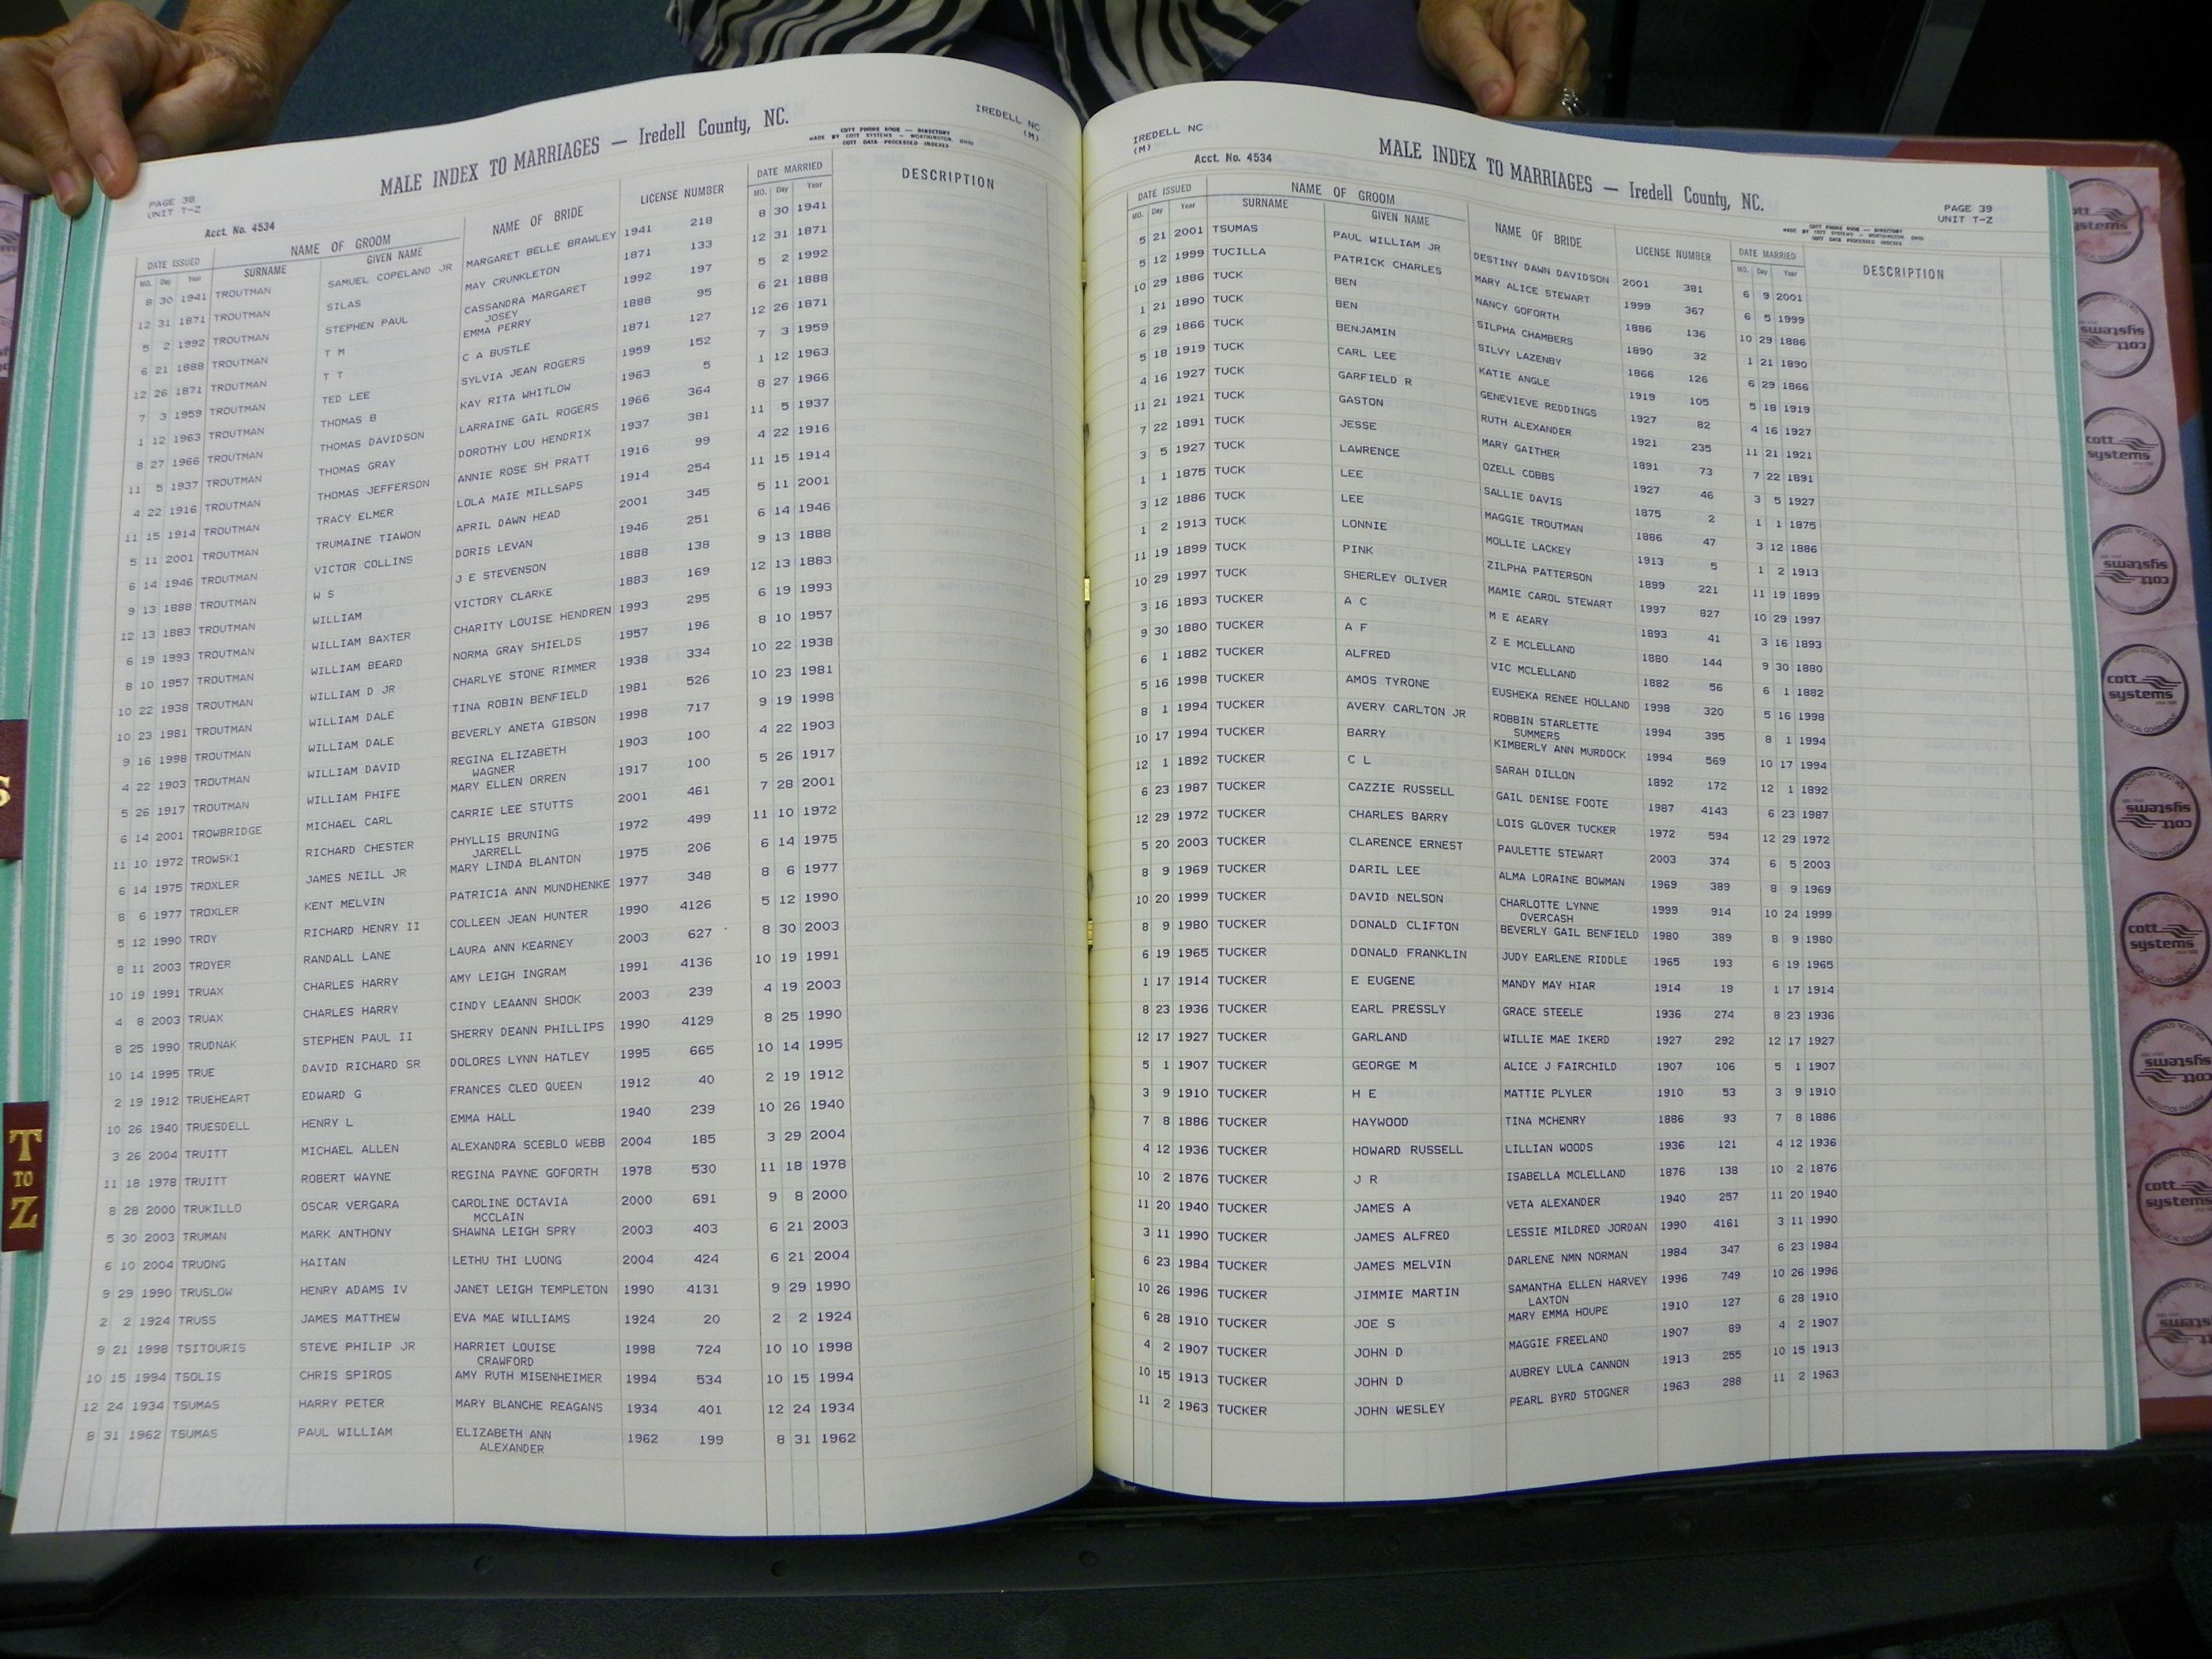 IREDELL NC
(M)
MALE INDEX TO MARRIAGES — Iredell County, NC.
COTT PHONE BOOK — DIRECTORY
MADE BY COTT SYSTEMS — WORTHINGTON, OHIO
COTT DATA PROCESSED INDEXES
PAGE 38
UNIT T-Z
Acct. No. 4534
DATE ISSUED NAME OF GROOM NAME OF BRIDE LICENSE NUMBER DATE MARRIED DESCRIPTION
MO. Day Year SURNAME GIVEN NAME MO. Day Year
8 30 1941 TROUTMAN SAMUEL COPELAND JR MARGARET BELLE BRAWLEY 1941 218 8 30 1941
12 31 1871 TROUTMAN SILAS MAY CRUNKLETON 1871 133 12 31 1871
5 2 1992 TROUTMAN STEPHEN PAUL CASSANDRA MARGARET 1992 197 5 2 1992
JOSEY
6 21 1888 TROUTMAN T M EMMA PERRY 1888 95 6 21 1888
12 26 1871 TROUTMAN T T C A BUSTLE 1871 127 12 26 1871
7 3 1959 TROUTMAN TED LEE SYLVIA JEAN ROGERS 1959 152 7 3 1959
1 12 1963 TROUTMAN THOMAS B KAY RITA WHITLOW 1963 5 1 12 1963
8 27 1966 TROUTMAN THOMAS DAVIDSON LARRAINE GAIL ROGERS 1966 364 8 27 1966
11 5 1937 TROUTMAN THOMAS GRAY DOROTHY LOU HENDRIX 1937 381 11 5 1937
4 22 1916 TROUTMAN THOMAS JEFFERSON ANNIE ROSE SH PRATT 1916 99 4 22 1916
11 15 1914 TROUTMAN TRACY ELMER LOLA MAIE MILLSAPS 1914 254 11 15 1914
5 11 2001 TROUTMAN TRUMAINE TIAWON APRIL DAWN HEAD 2001 345 5 11 2001
6 14 1946 TROUTMAN VICTOR COLLINS DORIS LEVAN 1946 251 6 14 1946
9 13 1888 TROUTMAN W S J E STEVENSON 1888 138 9 13 1888
12 13 1883 TROUTMAN WILLIAM VICTORY CLARKE 1883 169 12 13 1883
6 19 1993 TROUTMAN WILLIAM BAXTER CHARITY LOUISE HENDREN 1993 295 6 19 1993
8 10 1957 TROUTMAN WILLIAM BEARD NORMA GRAY SHIELDS 1957 196 8 10 1957
10 22 1938 TROUTMAN WILLIAM D JR CHARLYE STONE RIMMER 1938 334 10 22 1938
10 23 1981 TROUTMAN WILLIAM DALE TINA ROBIN BENFIELD 1981 526 10 23 1981
9 16 1998 TROUTMAN WILLIAM DALE BEVERLY ANETA GIBSON 1998 717 9 19 1998
4 22 1903 TROUTMAN WILLIAM DAVID REGINA ELIZABETH 1903 100 4 22 1903
WAGNER
5 26 1917 TROUTMAN WILLIAM PHIFE MARY ELLEN ORREN 1917 100 5 26 1917
6 14 2001 TROWBRIDGE MICHAEL CARL CARRIE LEE STUTTS 2001 461 7 28 2001
11 10 1972 TROWSKI RICHARD CHESTER PHYLLIS BRUNING 1972 499 11 10 1972
JARRELL
6 14 1975 TROXLER JAMES NEILL JR MARY LINDA BLANTON 1975 206 6 14 1975
8 6 1977 TROXLER KENT MELVIN PATRICIA ANN MUNDHENKE 1977 348 8 6 1977
5 12 1990 TROY RICHARD HENRY II COLLEEN JEAN HUNTER 1990 4126 5 12 1990
8 11 2003 TROYER RANDALL LANE LAURA ANN KEARNEY 2003 627 8 30 2003
10 19 1991 TRUAX CHARLES HARRY AMY LEIGH INGRAM 1991 4136 10 19 1991
4 8 2003 TRUAX CHARLES HARRY CINDY LEAANN SHOOK 2003 239 4 19 2003
8 25 1990 TRUDNAK STEPHEN PAUL II SHERRY DEANN PHILLIPS 1990 4129 8 25 1990
10 14 1995 TRUE DAVID RICHARD SR DOLORES LYNN HATLEY 1995 665 10 14 1995
2 19 1912 TRUEHEART EDWARD G FRANCES CLEO QUEEN 1912 40 2 19 1912
10 26 1940 TRUESDELL HENRY L EMMA HALL 1940 239 10 26 1940
3 26 2004 TRUITT MICHAEL ALLEN ALEXANDRA SCEBLO WEBB 2004 185 3 29 2004
11 18 1978 TRUITT ROBERT WAYNE REGINA PAYNE GOFORTH 1978 530 11 18 1978
8 28 2000 TRUKILLO OSCAR VERGARA CAROLINE OCTAVIA 2000 691 9 8 2000
MCCLAIN
5 30 2003 TRUMAN MARK ANTHONY SHAWNA LEIGH SPRY 2003 403 6 21 2003
6 10 2004 TRUONG HAITAN LETHU THI LUONG 2004 424 6 21 2004
9 29 1990 TRUSLOW HENRY ADAMS IV JANET LEIGH TEMPLETON 1990 4131 9 29 1990
2 2 1924 TRUSS JAMES MATTHEW EVA MAE WILLIAMS 1924 20 2 2 1924
9 21 1998 TSITOURIS STEVE PHILIP JR HARRIET LOUISE 1998 724 10 10 1998
CRAWFORD
10 15 1994 TSOLIS CHRIS SPIROS AMY RUTH MISENHEIMER 1994 534 10 15 1994
12 24 1934 TSUMAS HARRY PETER MARY BLANCHE REAGANS 1934 401 12 24 1934
8 31 1962 TSUMAS PAUL WILLIAM ELIZABETH ANN 1962 199 8 31 1962
ALEXANDER
S
T
TO
Z
IREDELL NC
(M)
MALE INDEX TO MARRIAGES — Iredell County, NC.
Acct. No. 4534
PAGE 39
UNIT T-Z
COTT PHONE BOOK — DIRECTORY
MADE BY COTT SYSTEMS — WORTHINGTON, OHIO
COTT DATA PROCESSED INDEXES
DATE ISSUED NAME OF GROOM NAME OF BRIDE LICENSE NUMBER DATE MARRIED DESCRIPTION
MO. Day Year SURNAME GIVEN NAME MO. Day Year
5 21 2001 TSUMAS PAUL WILLIAM JR DESTINY DAWN DAVIDSON 2001 381 6 9 2001
5 12 1999 TUCILLA PATRICK CHARLES MARY ALICE STEWART 1999 367 6 5 1999
10 29 1886 TUCK BEN NANCY GOFORTH 1886 136 10 29 1886
1 21 1890 TUCK BEN SILPHA CHAMBERS 1890 32 1 21 1890
6 29 1866 TUCK BENJAMIN SILVY LAZENBY 1866 126 6 29 1866
5 18 1919 TUCK CARL LEE KATIE ANGLE 1919 105 5 18 1919
4 16 1927 TUCK GARFIELD R GENEVIEVE REDDINGS 1927 82 4 16 1927
11 21 1921 TUCK GASTON RUTH ALEXANDER 1921 235 11 21 1921
7 22 1891 TUCK JESSE MARY GAITHER 1891 73 7 22 1891
3 5 1927 TUCK LAWRENCE OZELL COBBS 1927 46 3 5 1927
1 1 1875 TUCK LEE SALLIE DAVIS 1875 2 1 1 1875
3 12 1886 TUCK LEE MAGGIE TROUTMAN 1886 47 3 12 1886
1 2 1913 TUCK LONNIE MOLLIE LACKEY 1913 5 1 2 1913
11 19 1899 TUCK PINK ZILPHA PATTERSON 1899 221 11 19 1899
10 29 1997 TUCK SHERLEY OLIVER MAMIE CAROL STEWART 1997 827 10 29 1997
3 16 1893 TUCKER A C M E AEARY 1893 41 3 16 1893
9 30 1880 TUCKER A F Z E MCLELLAND 1880 144 9 30 1880
6 1 1882 TUCKER ALFRED VIC MCLELLAND 1882 56 6 1 1882
5 16 1998 TUCKER AMOS TYRONE EUSHEKA RENEE HOLLAND 1998 320 5 16 1998
8 1 1994 TUCKER AVERY CARLTON JR ROBBIN STARLETTE 1994 395 8 1 1994
SUMMERS
10 17 1994 TUCKER BARRY KIMBERLY ANN MURDOCK 1994 569 10 17 1994
12 1 1892 TUCKER C L SARAH DILLON 1892 172 12 1 1892
6 23 1987 TUCKER CAZZIE RUSSELL GAIL DENISE FOOTE 1987 4143 6 23 1987
12 29 1972 TUCKER CHARLES BARRY LOIS GLOVER TUCKER 1972 594 12 29 1972
5 20 2003 TUCKER CLARENCE ERNEST PAULETTE STEWART 2003 374 6 5 2003
8 9 1969 TUCKER DARIL LEE ALMA LORAINE BOWMAN 1969 389 8 9 1969
10 20 1999 TUCKER DAVID NELSON CHARLOTTE LYNNE 1999 914 10 24 1999
OVERCASH
8 9 1980 TUCKER DONALD CLIFTON BEVERLY GAIL BENFIELD 1980 389 8 9 1980
6 19 1965 TUCKER DONALD FRANKLIN JUDY EARLENE RIDDLE 1965 193 6 19 1965
1 17 1914 TUCKER E EUGENE MANDY MAY HIAR 1914 19 1 17 1914
8 23 1936 TUCKER EARL PRESSLY GRACE STEELE 1936 274 8 23 1936
12 17 1927 TUCKER GARLAND WILLIE MAE IKERD 1927 292 12 17 1927
5 1 1907 TUCKER GEORGE M ALICE J FAIRCHILD 1907 106 5 1 1907
3 9 1910 TUCKER H E MATTIE PLYLER 1910 53 3 9 1910
7 8 1886 TUCKER HAYWOOD TINA MCHENRY 1886 93 7 8 1886
4 12 1936 TUCKER HOWARD RUSSELL LILLIAN WOODS 1936 121 4 12 1936
10 2 1876 TUCKER J R ISABELLA MCLELLAND 1876 138 10 2 1876
11 20 1940 TUCKER JAMES A VETA ALEXANDER 1940 257 11 20 1940
3 11 1990 TUCKER JAMES ALFRED LESSIE MILDRED JORDAN 1990 4161 3 11 1990
6 23 1984 TUCKER JAMES MELVIN DARLENE NMN NORMAN 1984 347 6 23 1984
10 26 1996 TUCKER JIMMIE MARTIN SAMANTHA ELLEN HARVEY 1996 749 10 26 1996
LAXTON
6 28 1910 TUCKER JOE S MARY EMMA HOUPE 1910 127 6 28 1910
4 2 1907 TUCKER JOHN D MAGGIE FREELAND 1907 89 4 2 1907
10 15 1913 TUCKER JOHN D AUBREY LULA CANNON 1913 255 10 15 1913
11 2 1963 TUCKER JOHN WESLEY PEARL BYRD STOGNER 1963 288 11 2 1963
cott
systems
cott
systems
cott
systems
cott
systems
cott
systems
cott
systems
cott
systems
cott
systems
cott
systems